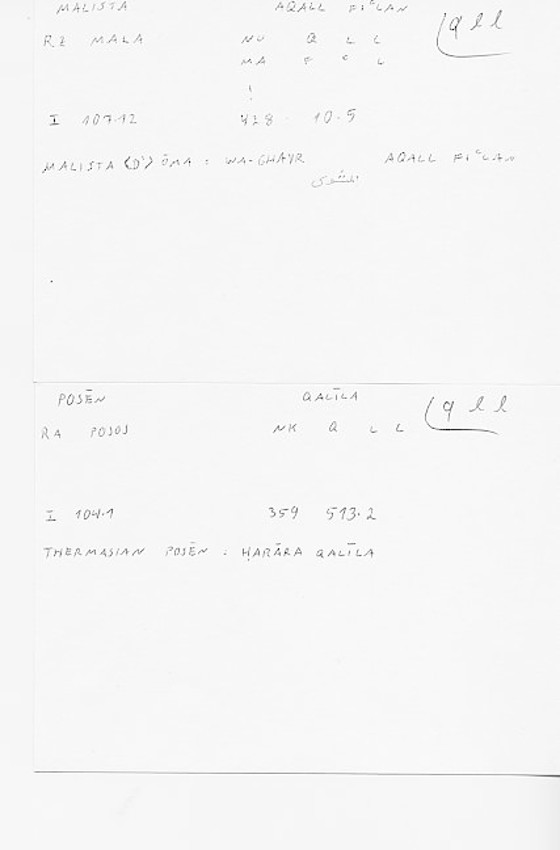 MALISTA AQALL FIᶜLAN qll
RZ MALA NU Q L L
MA F ᶜ L
!
I 107.12 428 10.5
MALISTA <D'> ŌMA : WA-GHAYR AQALL FIᶜLAN
POSĒN QALĪLA qll
RA POSOS NK Q L L
I 104.1 359 513.2
THERMASIAN POSĒN : ḤARĀRA QALĪLA